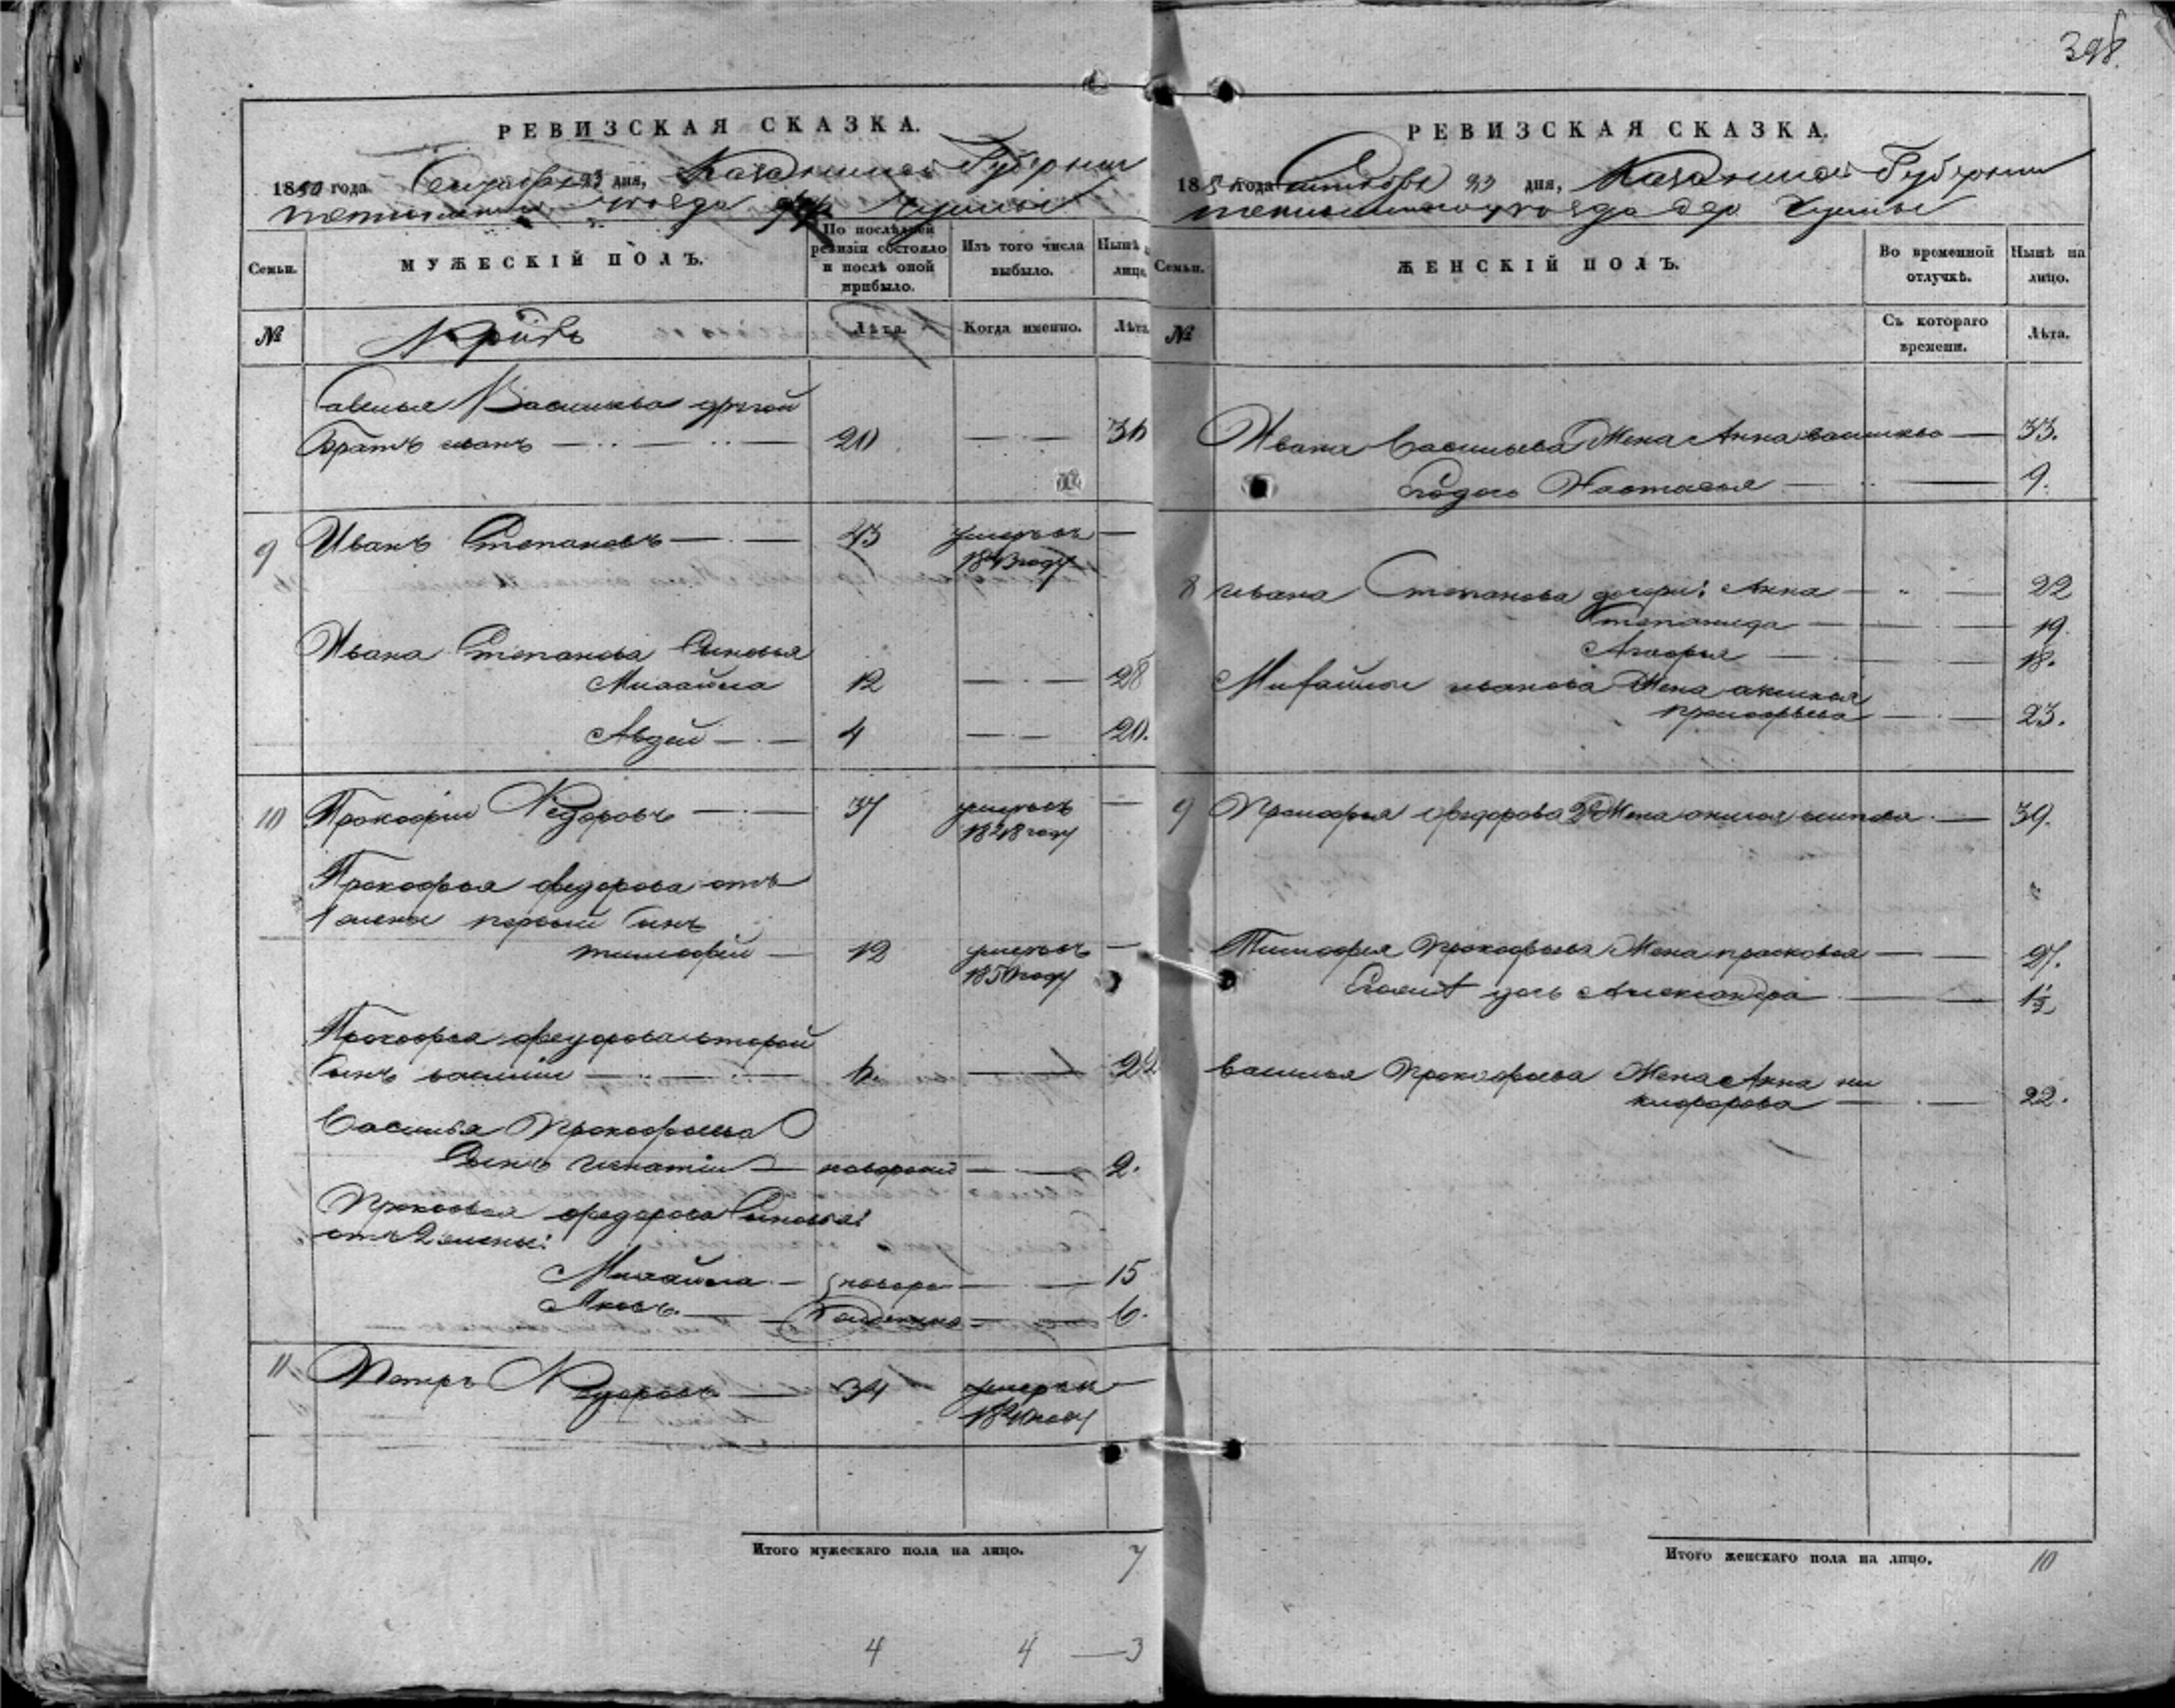 398.
РЕВИЗСКАЯ СКАЗКА.
1850 года Сентября 23 дня, Казанской Губернии
уезда дер
Семьи.
МУЖЕСКІЙ ПОЛЪ.
По послѣдней ревизіи состояло и послѣ оной прибыло.
Изъ того числа выбыло.
Нынѣ лицо
№
Лѣта.
Когда именно.
Лѣта
Василья другой
Братъ иванъ 20 30
9 Иванъ Степановъ 43 умеръ въ
1843 году
Ивана Степанова Сыновья
Михайла 12 28
Авдей 4 20.
10 Прокофий Федоровъ 37 умеръ въ
1848 году
Прокофья федорова отъ
1 жены первый Сынъ
тимофей 12 умеръ въ
1850 году
Прокофья федорова второй
Сынъ василий 6. 22
Василья Прокофьева
Сынъ игнатий новорожд 2.
Прокофья федорова Сыновья:
отъ 2 жены:
Михайла новоро 15
Яковъ жденные 6.
11 Петръ Федоровъ 34 умеръ въ
году
Итого мужескаго пола на лицо. 7
4 4 3
РЕВИЗСКАЯ СКАЗКА.
1850 года Сентября 23 дня, Казанской Губернии
уезда дер
Семьи.
ЖЕНСКІЙ ПОЛЪ.
Во временной отлучкѣ.
Нынѣ на лицо.
№
Съ котораго времени.
Лѣта.
Ивана Васильева Жена Анна 33.
Настасья 9.
8 ивана Степанова дочери: Анна 22
Степанида 19.
18.
Михайлы иванова Жена
прокофьева 23.
9 Прокофья федорова 2 Жена 39.
Тимофея Прокофьева Жена прасковья 27.
дочь Александра 1½
василья Прокофьева Жена Анна ни
кифорова 22.
Итого женскаго пола на лицо. 10